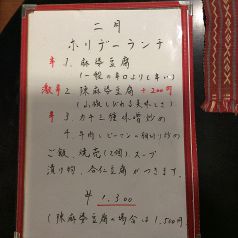 二月
ホリデーランチ
辛 1. 麻婆豆腐
(一般の辛口より辛い)
激辛 2. 陳麻婆豆腐 +200円
(山椒しびれる美味しさ)
3. カキ三種 味噌炒め
4. 牛肉とピーマンの細切り炒め
ご飯、焼売(2個)、スープ
漬け物、杏仁豆腐がつきます。
¥1,300
(陳麻婆豆腐の場合は1,500円